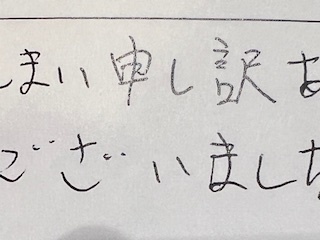 しまい申し訳あ
ございました